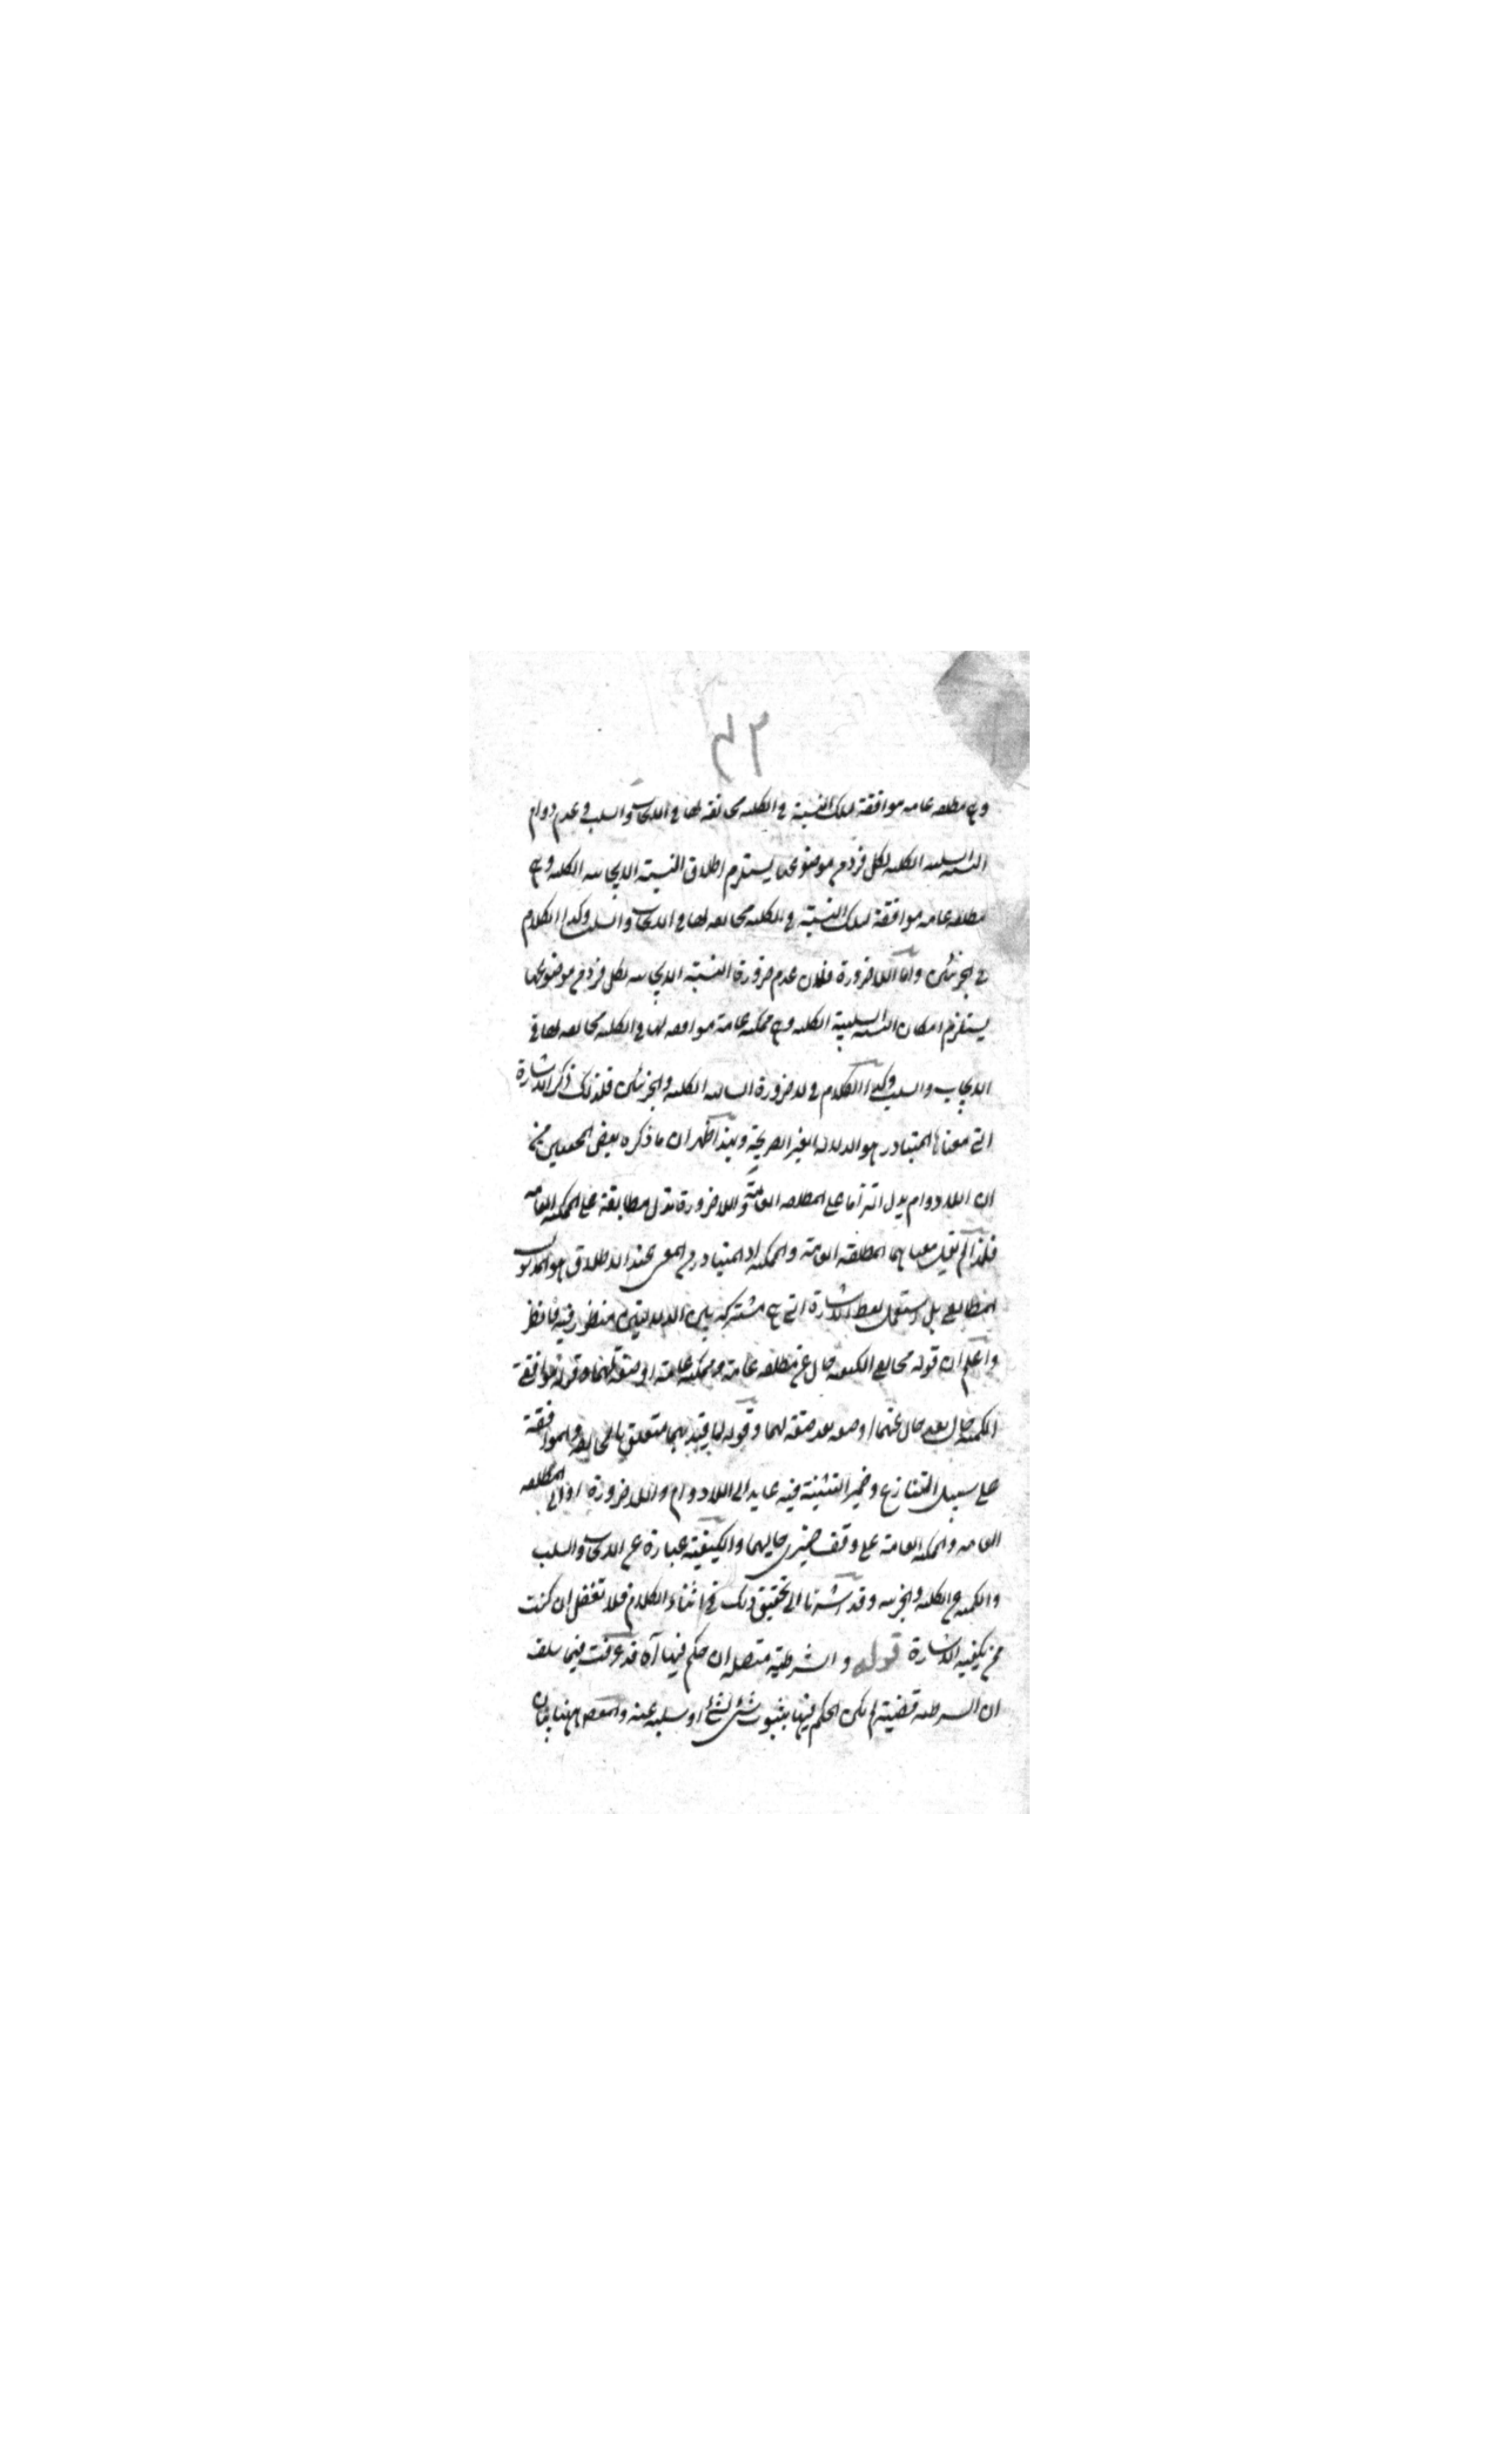 ٤٢
وهي مطلقه عامه موافقة لتلك النسبة في الكليه مخالفه لها في الايجاب والسلب وعدم دوام
النسبة السلبيه الكليه لكل فرد من موضوعها يستلزم اطلاق النسبة الايجابيه الكليه وهي
مطلقه عامه موافقة لتلك النسبة في الكليه مخالفه لها في الايجاب والسلب وكذا الكلام
في الجزئيتين واما اللاضرورة فلان عدم ضرورة النسبة الايجابيه لكل فرد من موضوعها
يستلزم امكان النسبة السلبية الكليه وهي ممكنه عامة موافقه لها في الكليه مخالفه لها في
الايجاب والسلب وكذا الكلام في لاضرورة السالبه الكليه والجزئيتين فلذلك ذكر الاشارة
التي معناها المتبادر هو الدلاله الغير الصريحة وبهذا ظهر ان ما ذكره بعض المحققين من
ان اللادوام يدل التزاما على المطلقه العامة واللاضرورة تدل مطابقة على الممكنه العامه
فلذا لم يقل معناهما المطلقه العامة والممكنه اذ المتبادر من المعنى عند الاطلاق هو المدلول
المطابقي بل استعمل لفظ الاشارة التي هي مشتركه بين الدلالتين منظور فيه فانظر
واعلم ان قوله مخالفتي الكيفيه حال عن مطلقه عامة وممكنه عامة او صفة لهما وقوله موافقتي
الكميه حال بعد حال عنهما او صفه بعد صفة لهما وقوله لما قيد بهما متعلق بالمخالفه والموافقة
على سبيل التنازع وضمير التثنية فيه عايد الى اللادوام واللاضرورة او الى المطلقه
العامه والممكنه العامة على وفق ضميري حاليهما والكيفية عبارة عن الايجاب والسلب
والكميه عن الكليه والجزئيه وقد اشرنا الى تحقيق ذلك في اثناء الكلام فلا تغفل ان كنت
ممن يكفيه الاشارة قوله والشرطية متصله ان حكم فيها آه قد عرفت فيما سلف
ان الشرطيه قضية لم يكن الحكم فيها بثبوت شئ لشئ او سلبه عنه والمقص ههنا بيان